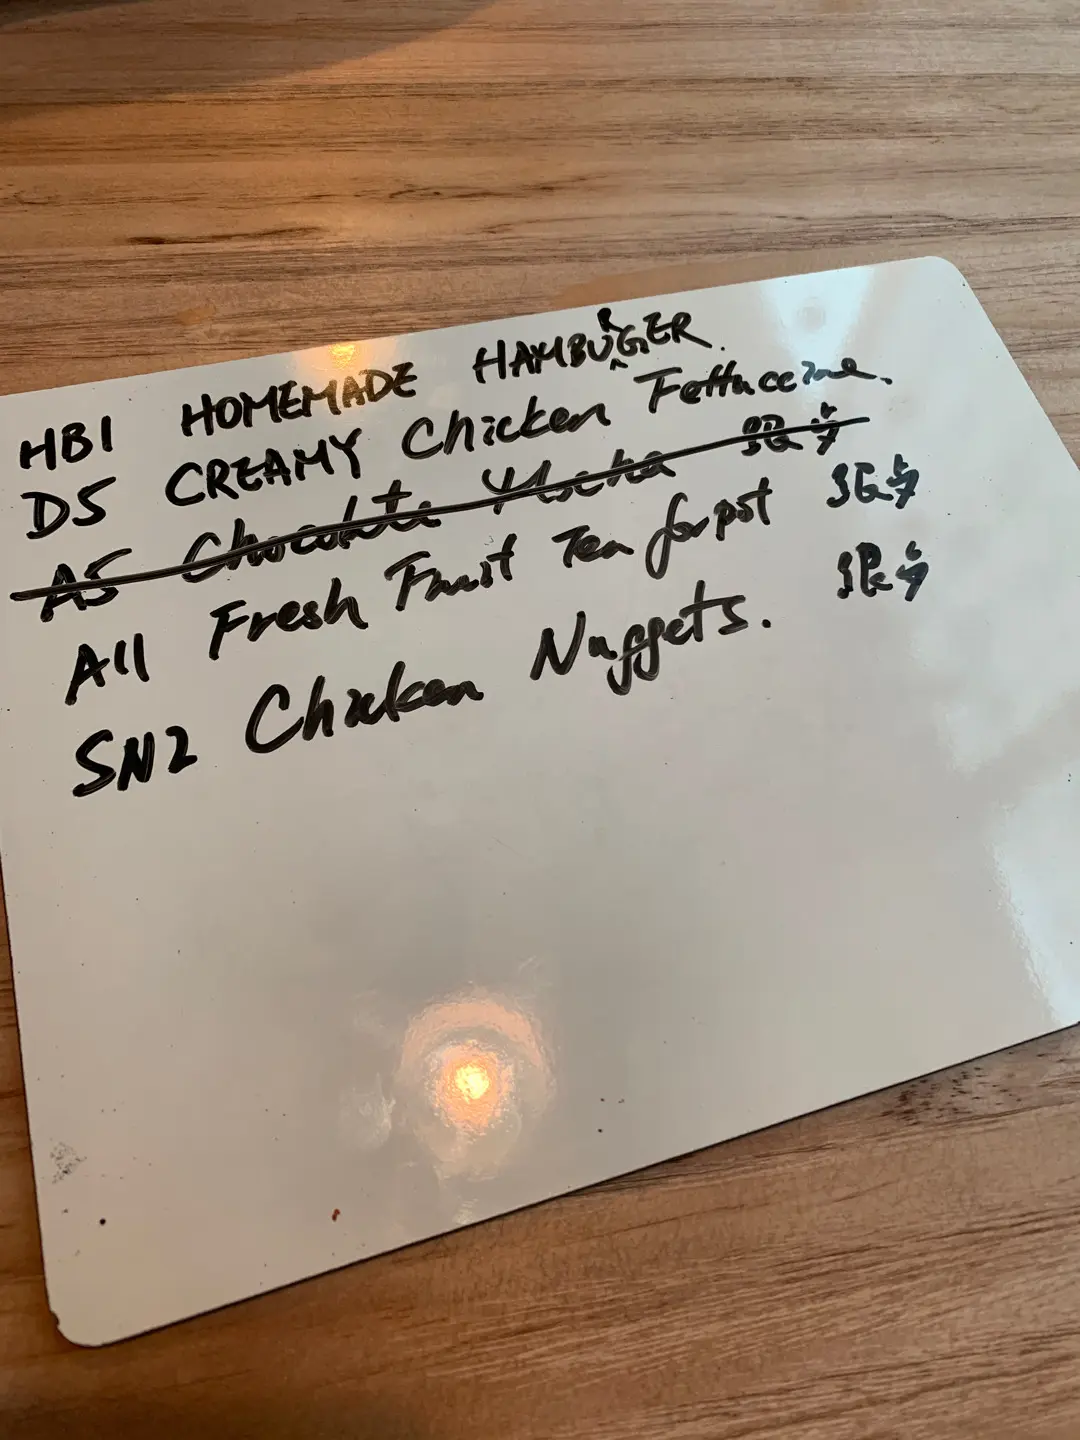 HB1 HOMEMADE HAMBURGER.
D5 CREAMY Chicken Fettuccine.
A5 Chocolate Mocha
A11 Fresh Fruit Tea for pot
SN2 Chicken Nuggets.